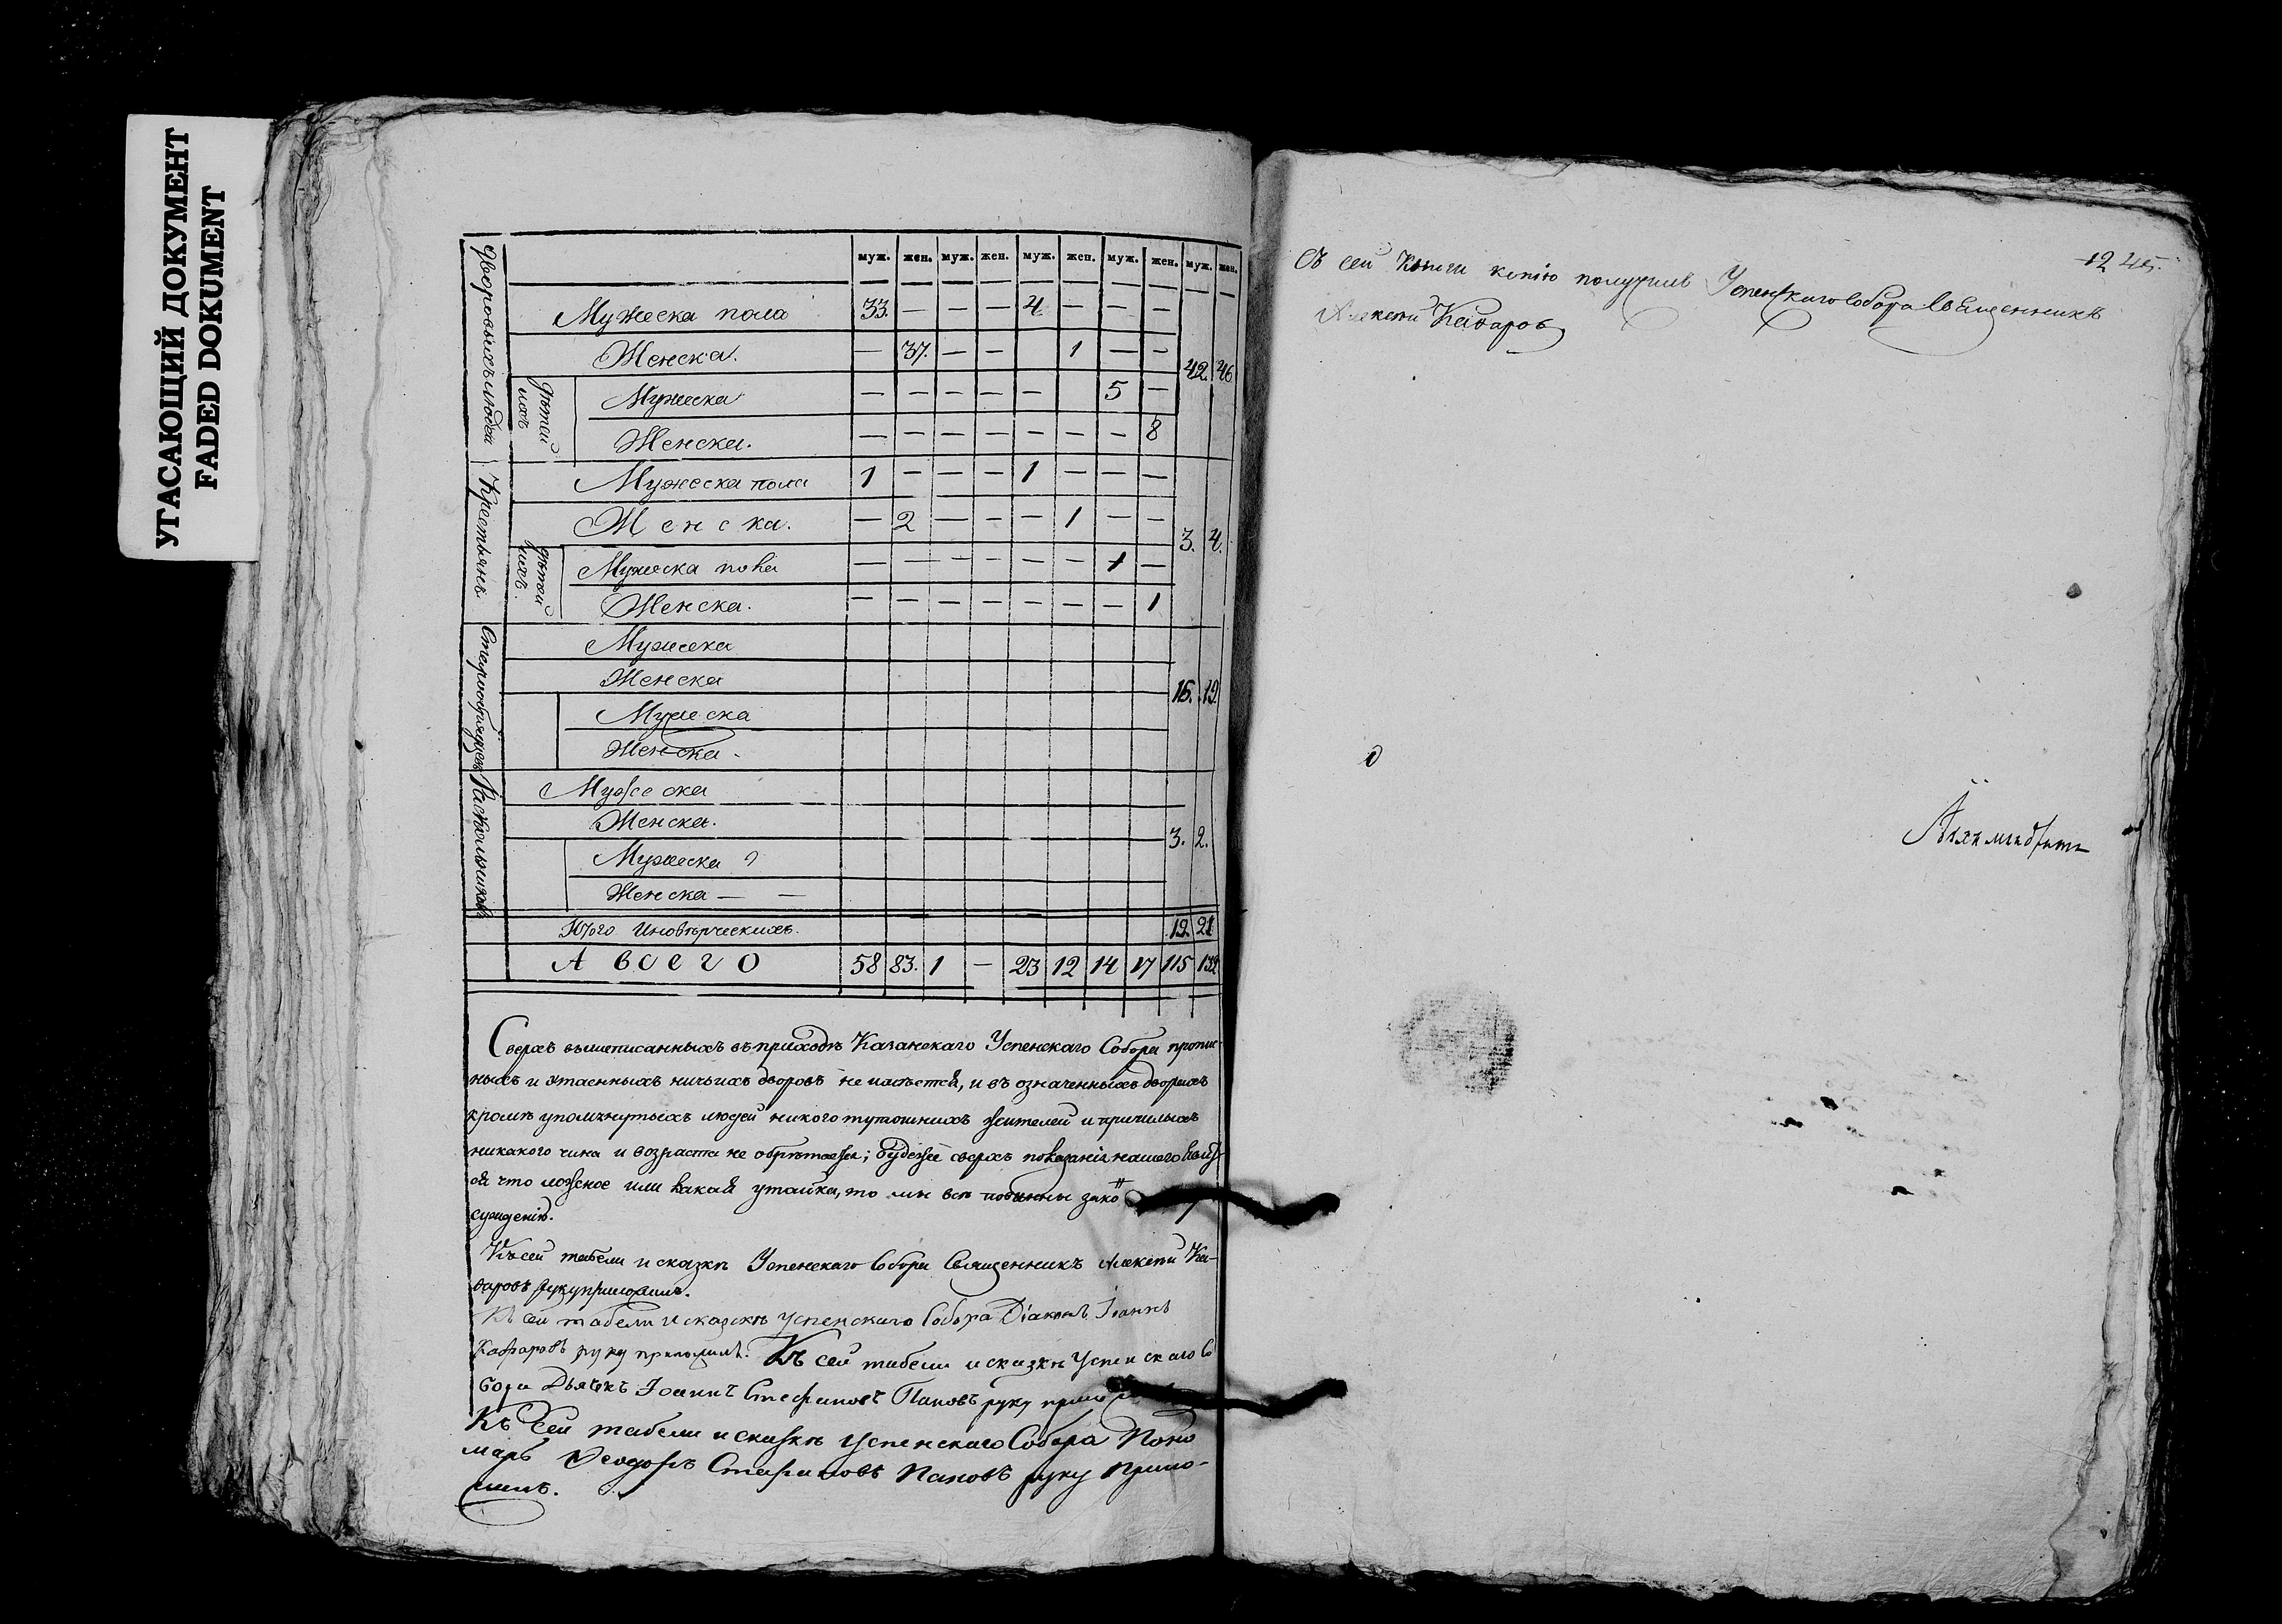 УГАСАЮЩИЙ ДОКУМЕНТ
FADED DOKUMENT
муж. жен. муж. жен. муж. жен. муж. жен. муж. жен.
Дворовыхъ людей
Мужеска пола 33. — — — 4 — — —
Женска. — 37. — — 1 — — 42. 46
дѣтей ихъ
Мужеска — — — — — 5 —
Женска. — — — — — — — 8
Крестьянъ.
Мужеска пола 1 — — — 1 — — —
Женска. — 2 — — — 1 — — 3. 4.
дѣтей ихъ.
Мужеска пола — — — — — — 1 —
Женска. — — — — — — — 1
Мужеска
Женска 16. 19
Мужеска
Женска.
Раскольниковъ
Мужеска
Женска. 3. 2.
Мужеска
Женска — —
Итого Иновѣрческихъ. 19. 21
А всего 58 83. 1 — 23 12 14 17 115 132
Сверхъ вышеписанныхъ въ приходѣ Казанскаго Успенскаго Собора пропис-
ныхъ и утаенныхъ ничьихъ дворовъ не имѣется, и въ означенныхъ дворахъ
кромѣ упомянутыхъ людей никого тутошнихъ жителей и пришлыхъ
никакого чина и возраста не обрѣтается; будеже сверхъ показанія нашего явит-
ся что ложное или какая утайка, то мы всѣ повинны зако
сужденію.
Къ сей табели и сказкѣ Успенскаго Собора Священникъ Алексѣй Ка-
фаровъ руку приложилъ.
Къ сей табели и сказкѣ Успенскаго Собора Діаконъ Іоаннъ
Кафаровъ руку приложилъ. Къ сей табели и сказкѣ Успенскаго Со
бора Дьячекъ Іоаннъ Стефановъ Пановъ руку прило
Къ сей табели и сказкѣ Успенскаго Собора Поно
марь Ѳеодоръ Стефановъ Пановъ руку прило-
жилъ.
Съ сей Книги копію получилъ Успенскаго Собора Священникъ
Алексѣй Кафаровъ